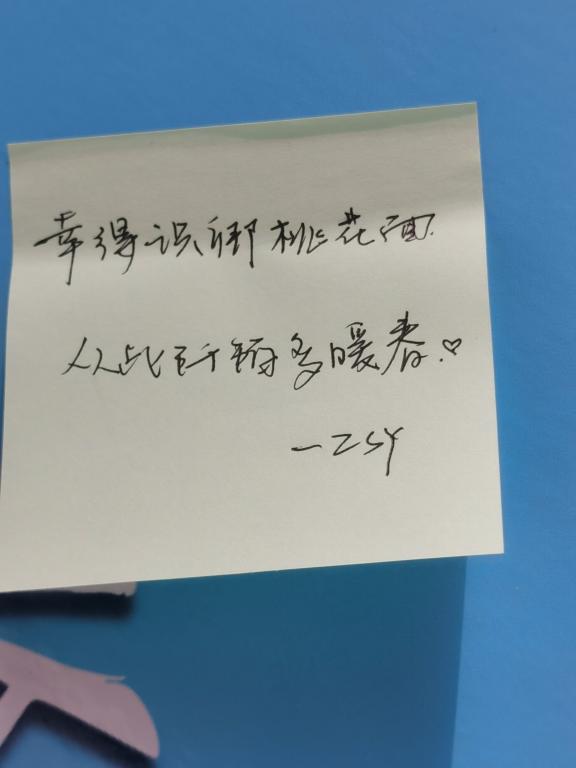 幸得识卿桃花面
从此阡陌多暖春.♡
一ZSY